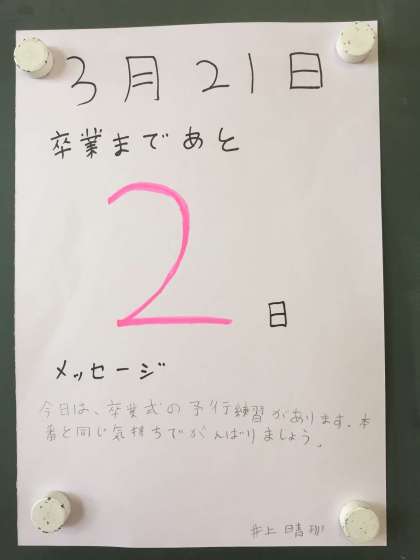 3月21日
卒業まであと
2日
メッセージ
今日は、卒業式の予行練習があります。本
番と同じ気持ちでがんばりましょう。
井上 晴